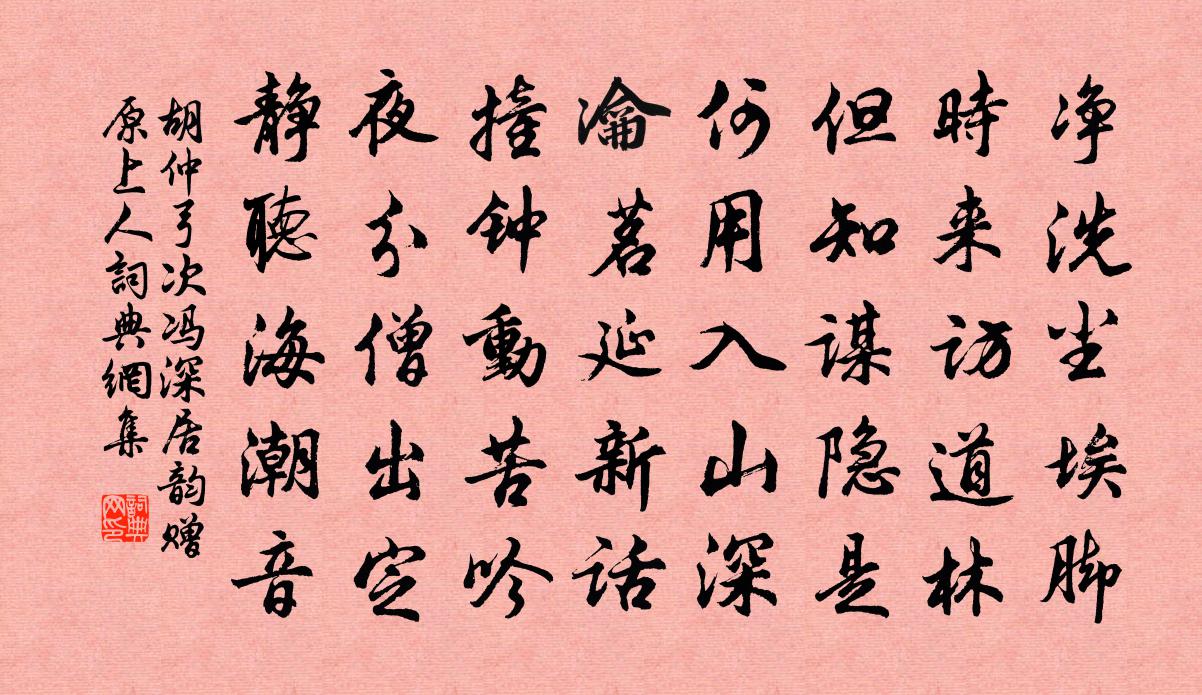 净洗尘埃脚
時来访道林
但知谋隐是
何用入山深
瀹茗延新话
撞钟動苦吟
夜分僧出定
静聽海潮音
胡仲弓次冯深居韵赠
原上人詞典網集
詞典网印